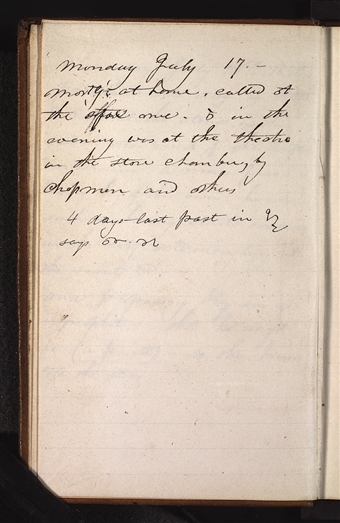 Monday July 17. -
at home, called at
the office one. & in the
evening was at the theatre
in the stone chamber, by
Chapman and others
4 days last past in
say